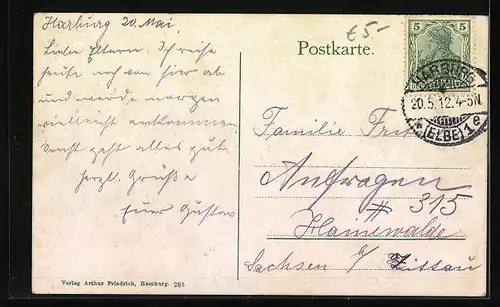 Harburg 20. Mai.
Liebe Eltern. Ich reise
heute noch von hier ab
und werde morgen
vielleicht ankommen
Sonst geht alles gut.
herzl. Grüße
Euer Gustav
Verlag Arthur Friedrich, Hamburg. 285
€5-
Postkarte.
5 5
HARBURG
20.5.12.4-5N.
(ELBE) 1e
Familie
# 315
Hainewalde
Sachsen b/ Zittau